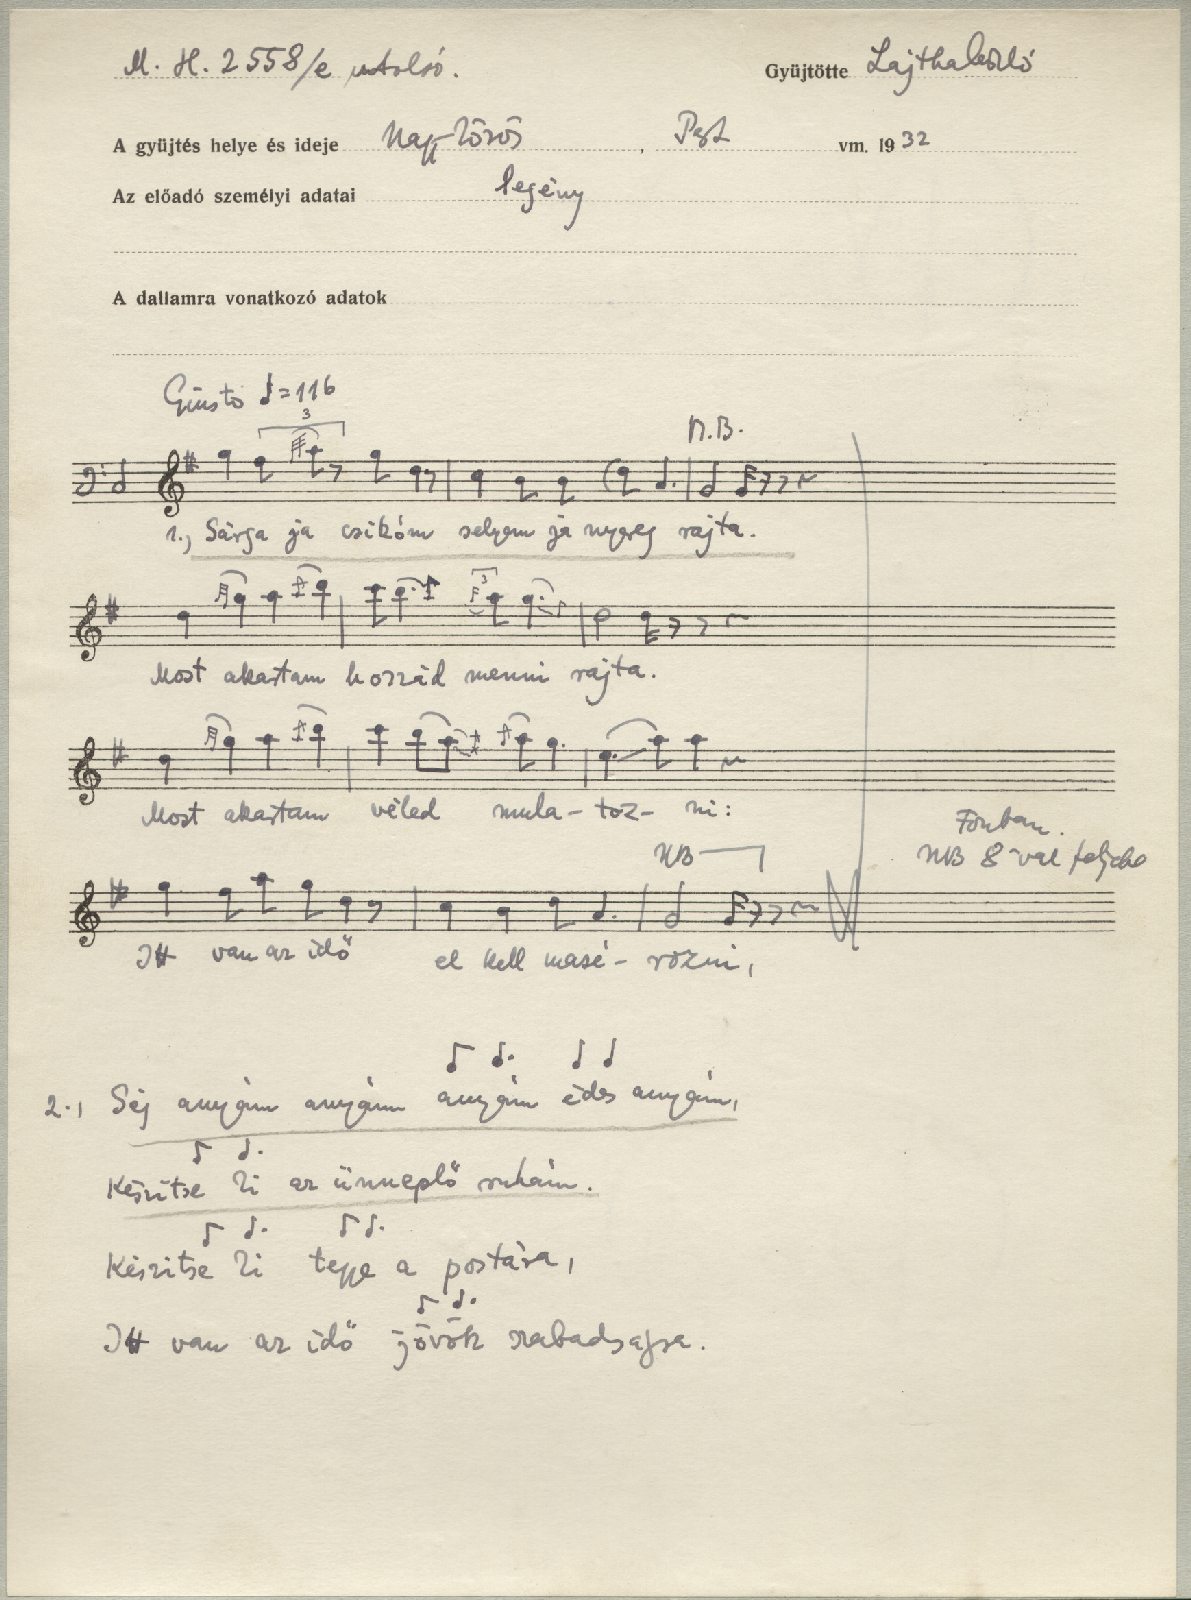 M. H. 2558/e utolsó.
Gyüjtötte Lajtha László
A gyüjtés helye és ideje Nagykőrös, Pest vm. 1932
Az előadó személyi adatai legény
A dallamra vonatkozó adatok
Giusto ♩=116
3
N.B.
1., Sárga ja csikóm selyem ja nyereg rajta.
3
Most akartam hozzád menni rajta.
Most akartam véled mula-toz-ni:
Fonban.
NB 8-val feljebb
NB
Itt van az idő el kell masé-rozni,
2., Séj anyám anyám anyám édes anyám,
Készitse ki az ünneplő ruhám.
Készitse ki tegye a postára,
Itt van az idő jövök szabadságra.